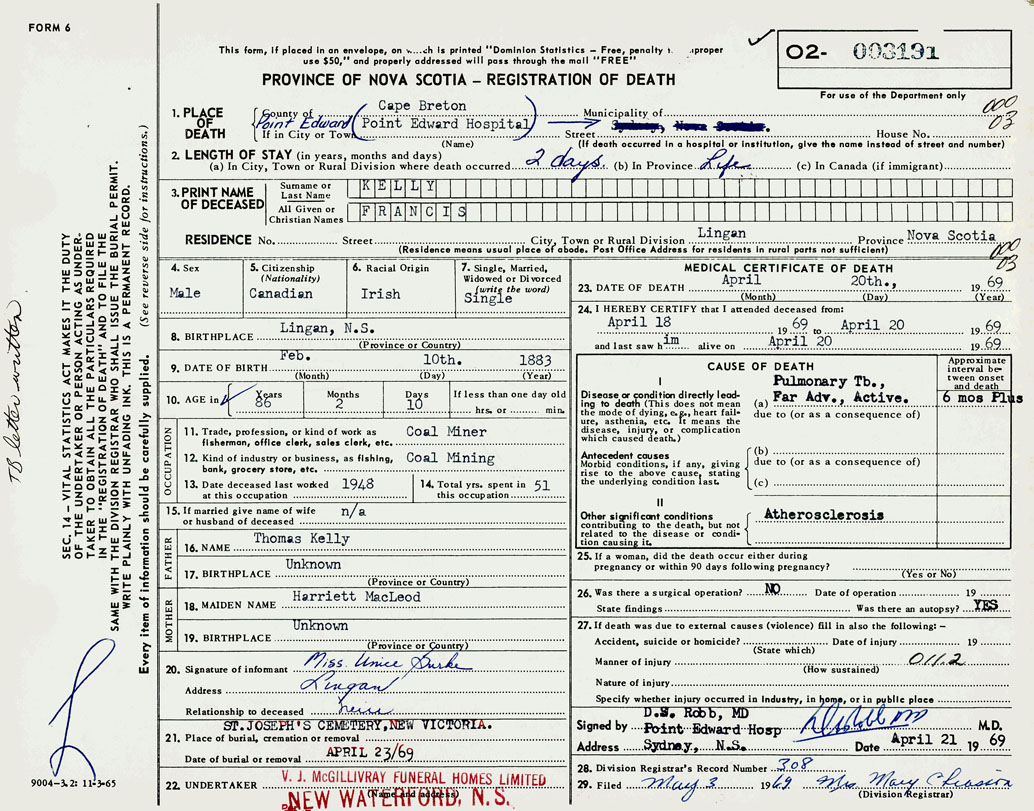 FORM 6
This form, if placed in an envelope, on which is printed "Dominion Statistics — Free, penalty improper
use $50," and properly addressed will pass through the mail "FREE"
PROVINCE OF NOVA SCOTIA — REGISTRATION OF DEATH
02- 003191
For use of the Department only
000
03
1. PLACE OF DEATH
County of Cape Breton
Municipality of
Point Edward (Point Edward Hospital) Sydney, Nova Scotia.
If in City or Town (Name) Street House No.
(If death occurred in a hospital or institution, give the name instead of street and number)
2. LENGTH OF STAY (in years, months and days)
(a) In City, Town or Rural Division where death occurred 2 days (b) In Province Life (c) In Canada (if immigrant)
3. PRINT NAME OF DECEASED
Surname or Last Name KELLY
All Given or Christian Names FRANCIS
RESIDENCE No. Street City, Town or Rural Division Lingan Province Nova Scotia
(Residence means usual place of abode. Post Office Address for residents in rural parts not sufficient)
000
03
4. Sex
Male
5. Citizenship (Nationality)
Canadian
6. Racial Origin
Irish
7. Single, Married, Widowed or Divorced (write the word)
Single
8. BIRTHPLACE Lingan, N.S.
(Province or Country)
9. DATE OF BIRTH Feb. 10th. 1883
(Month) (Day) (Year)
10. AGE in Years 86 Months 2 Days 10 If less than one day old hrs. or min.
OCCUPATION
11. Trade, profession, or kind of work as fisherman, office clerk, sales clerk, etc. Coal Miner
12. Kind of industry or business, as fishing, bank, grocery store, etc. Coal Mining
13. Date deceased last worked at this occupation 1948
14. Total yrs. spent in this occupation 51
15. If married give name of wife or husband of deceased n/a
FATHER
16. NAME Thomas Kelly
17. BIRTHPLACE Unknown
(Province or Country)
MOTHER
18. MAIDEN NAME Harriett MacLeod
19. BIRTHPLACE Unknown
(Province or Country)
20. Signature of informant Miss. Unice Burke
Address Lingan
Relationship to deceased
ST.JOSEPH'S CEMETERY, NEW VICTORIA.
21. Place of burial, cremation or removal
Date of burial or removal APRIL 23/69
22. UNDERTAKER V. J. McGILLIVRAY FUNERAL HOMES LIMITED
(Name and address)
NEW WATERFORD, N.S.
MEDICAL CERTIFICATE OF DEATH
23. DATE OF DEATH April 20th., 1969
(Month) (Day) (Year)
24. I HEREBY CERTIFY that I attended deceased from:
April 18 1969 to April 20 1969
and last saw him alive on April 20 1969.
CAUSE OF DEATH
Approximate interval between onset and death
I
Disease or condition directly leading to death (This does not mean the mode of dying, e.g., heart failure, asthenia, etc. It means the disease, injury, or complication which caused death.)
Pulmonary Tb.,
(a) Far Adv., Active. 6 mos Plus
due to (or as a consequence of)
Antecedent causes
Morbid conditions, if any, giving rise to the above cause, stating the underlying condition last.
(b)
due to (or as a consequence of)
(c)
II
Other significant conditions contributing to the death, but not related to the disease or condition causing it.
Atherosclerosis
25. If a woman, did the death occur either during
pregnancy or within 90 days following pregnancy?
(Yes or No)
26. Was there a surgical operation? NO Date of operation 19
State findings Was there an autopsy? YES
27. If death was due to external causes (violence) fill in also the following: —
Accident, suicide or homicide? Date of injury 19
(State which)
Manner of injury 011.2
(How sustained)
Nature of injury
Specify whether injury occurred in Industry, in home, or in public place
D.S. Robb, MD
Signed by Point Edward Hosp DS Robb MD M.D.
Address Sydney, N.S. Date April 21 1969
28. Division Registrar's Record Number 308
29. Filed May 3 1969 Mrs Mary Chiasson
(Division Registrar)
SEC. 14 — VITAL STATISTICS ACT MAKES IT THE DUTY
OF THE UNDERTAKER OR PERSON ACTING AS UNDER-
TAKER TO OBTAIN ALL THE PARTICULARS REQUIRED
IN THE "REGISTRATION OF DEATH" AND TO FILE THE
SAME WITH THE DIVISION REGISTRAR WHO SHALL ISSUE THE BURIAL PERMIT.
WRITE PLAINLY WITH UNFADING INK. THIS IS A PERMANENT RECORD.
Every item of information should be carefully supplied. (See reverse side for instructions.)
TB letter written
9004—3.2: 11-3-65